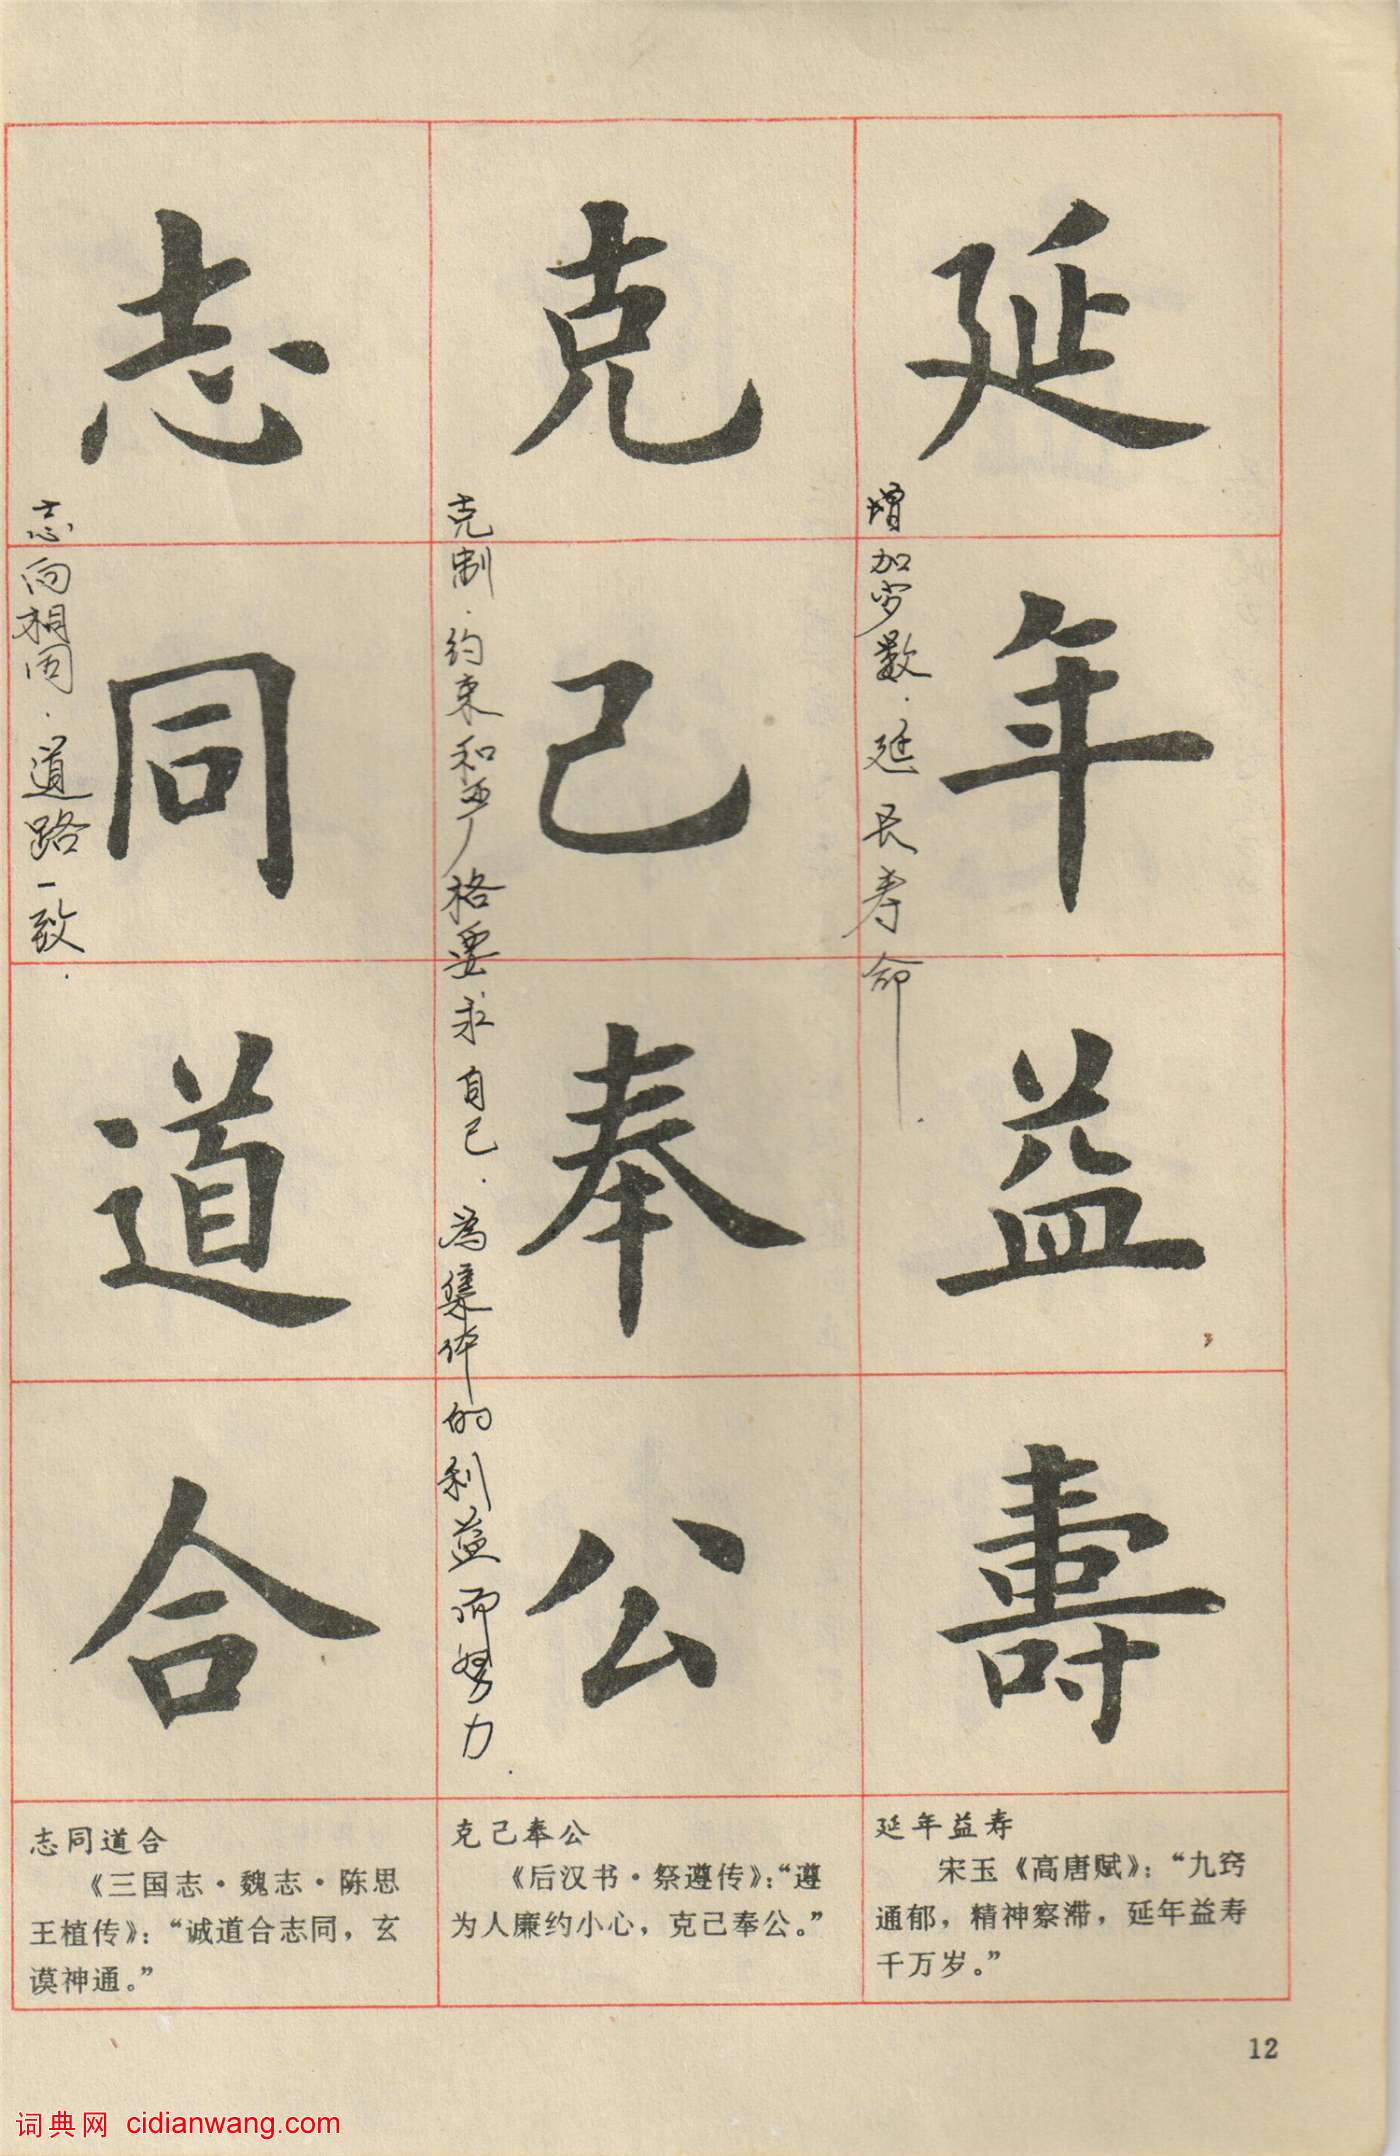 延年益壽
增加岁数.延长寿命.
克己奉公
克制.约束和严格要求自己.为集体的利益而努力.
志同道合
志向相同.道路一致.
延年益寿
宋玉《高唐赋》：“九窍
通郁，精神察滞，延年益寿
千万岁。”
克己奉公
《后汉书·祭遵传》：“遵
为人廉约小心，克己奉公。”
志同道合
《三国志·魏志·陈思
王植传》：“诚道合志同，玄
谟神通。”
12
词典网 cidianwang.com